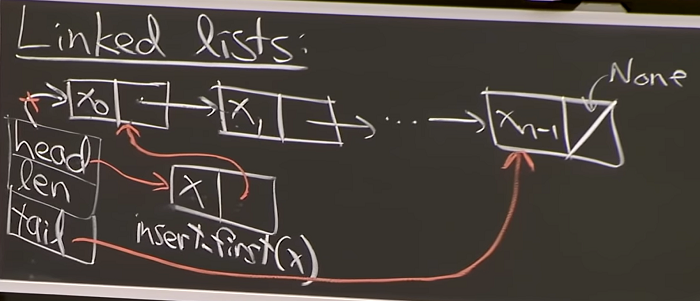 Linked lists:
None
x₀
x₁
...
xₙ₋₁
head
len
tail
x
insert_first(x)